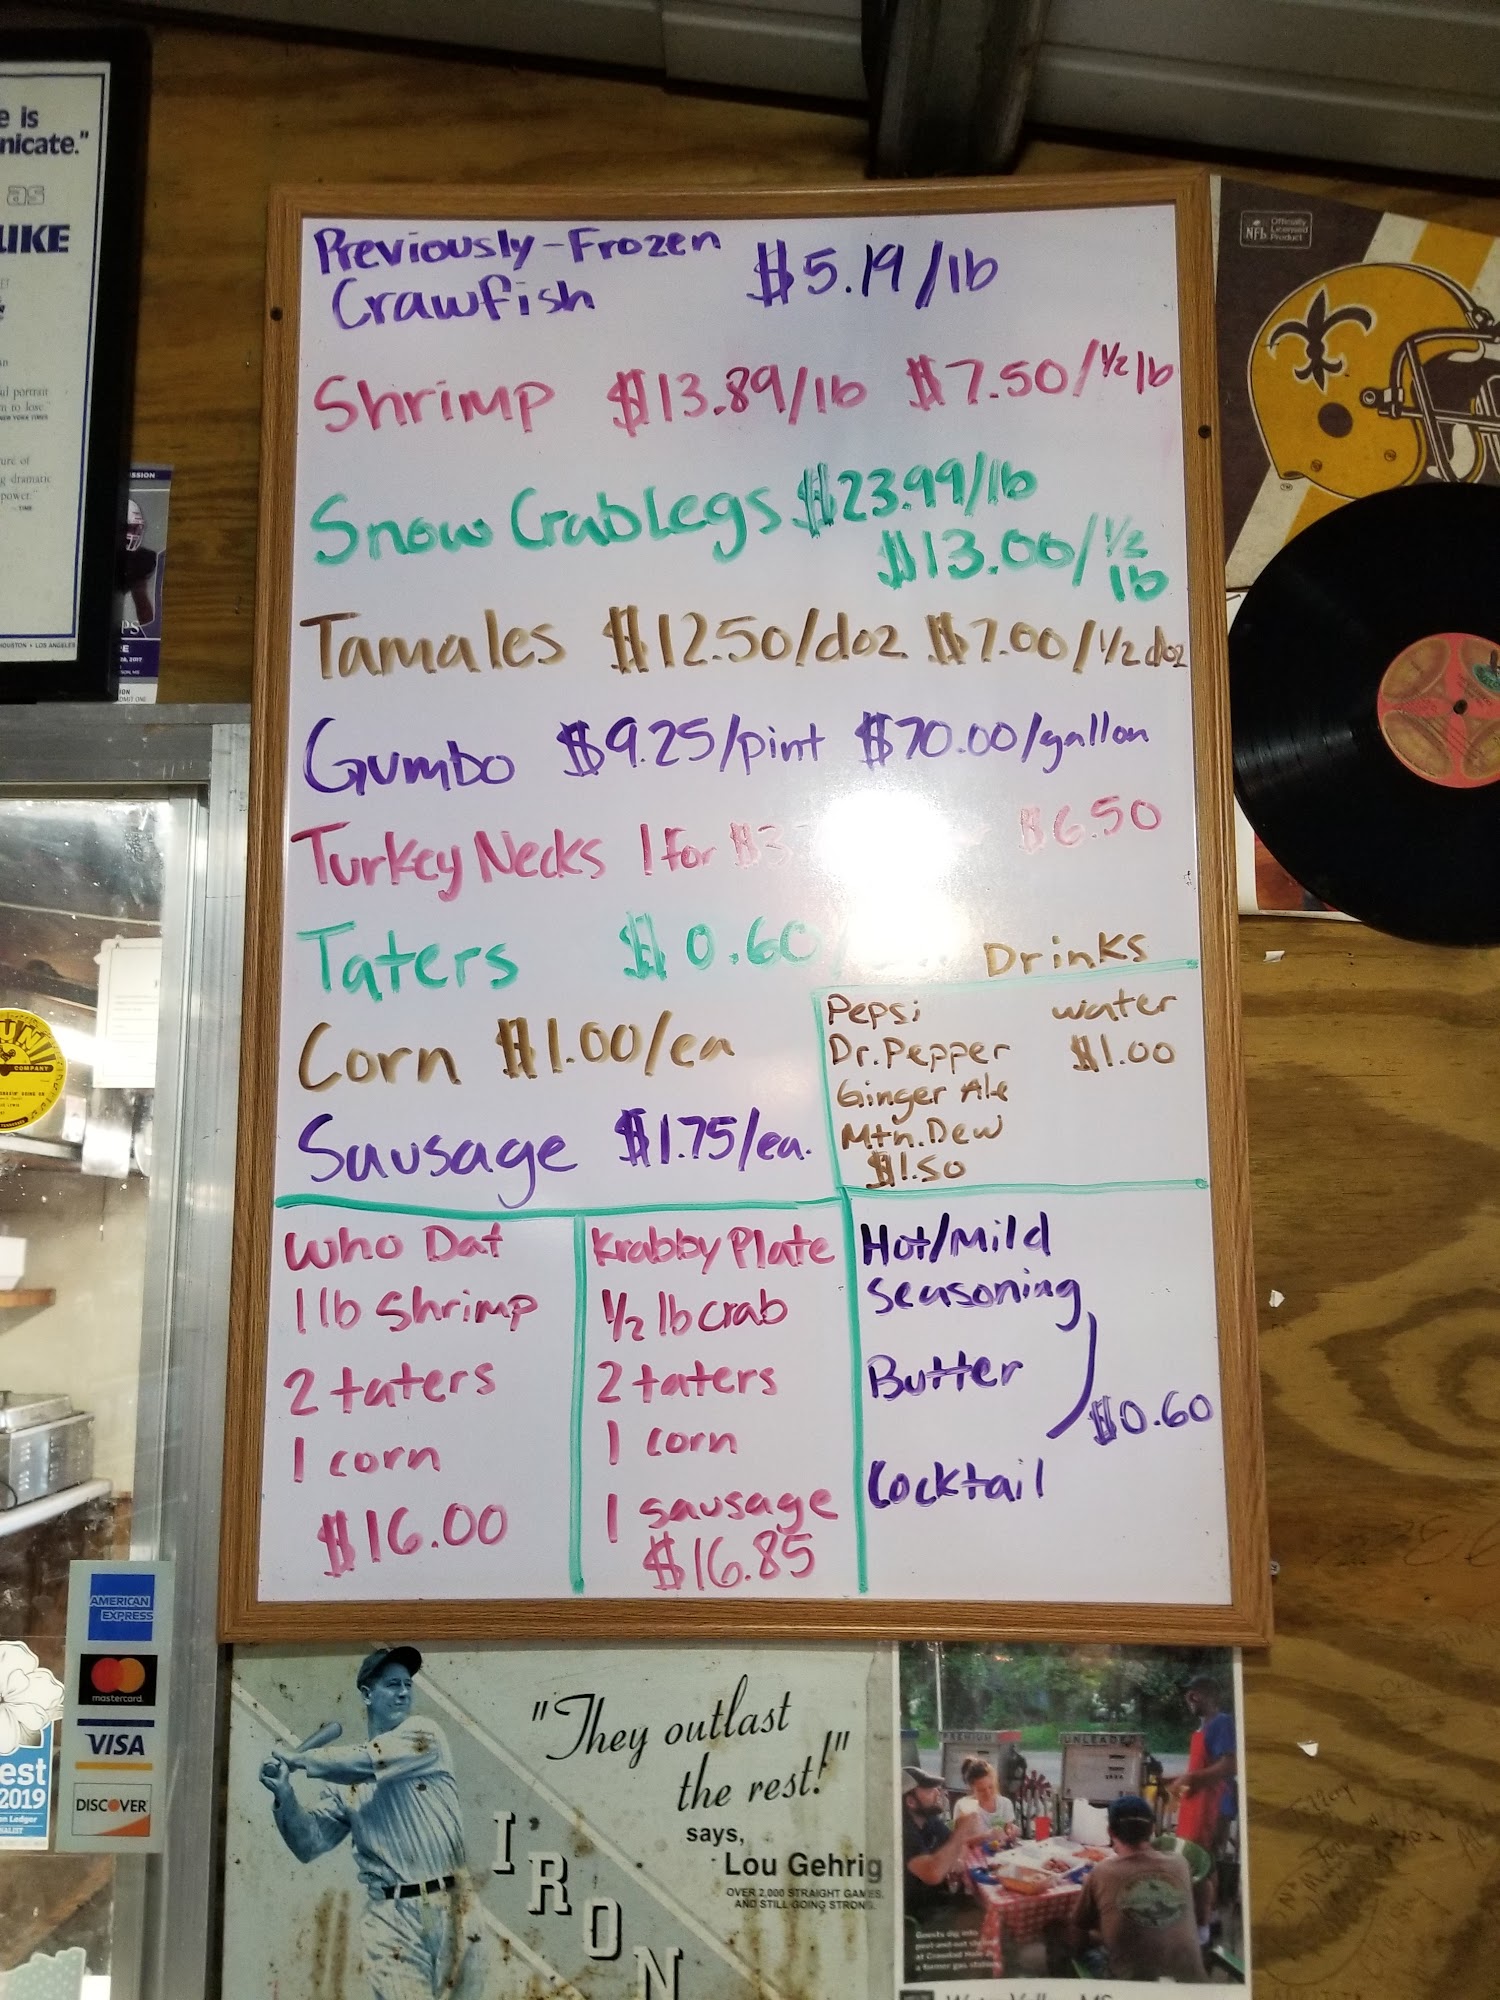 e is
nicate."
as
UKE
ul portrait
m to lose."
NEW YORK TIMES
ure of
g dramatic
power."
TIME
HOUSTON • LOS ANGELES
Officially
Licensed
Product
NFL
Previously-Frozen
Crawfish $5.19/lb
Shrimp $13.89/lb $7.50/½ lb
Snow Crab Legs $23.99/lb
$13.00/½
lb
Tamales $12.50/doz $7.00/½ doz
Gumbo $9.25/pint $70.00/gallon
Turkey Necks 1 for $3 $6.50
Taters $0.60
Corn $1.00/ea
Sausage $1.75/ea.
Drinks
Pepsi
Dr. Pepper
Ginger Ale
Mtn. Dew
$1.50
water
$1.00
Who Dat
1 lb shrimp
2 taters
1 corn
$16.00
Krabby Plate
½ lb crab
2 taters
1 corn
1 sausage
$16.85
Hot/Mild
Seasoning
Butter
Cocktail
$0.60
COMPANY
AMERICAN
EXPRESS
mastercard
VISA
DISCOVER
est
2019
"They outlast
the rest!"
says,
Lou Gehrig
OVER 2,000 STRAIGHT GAMES
AND STILL GOING STRONG.
IRON
PREMIUM
UNLEADED